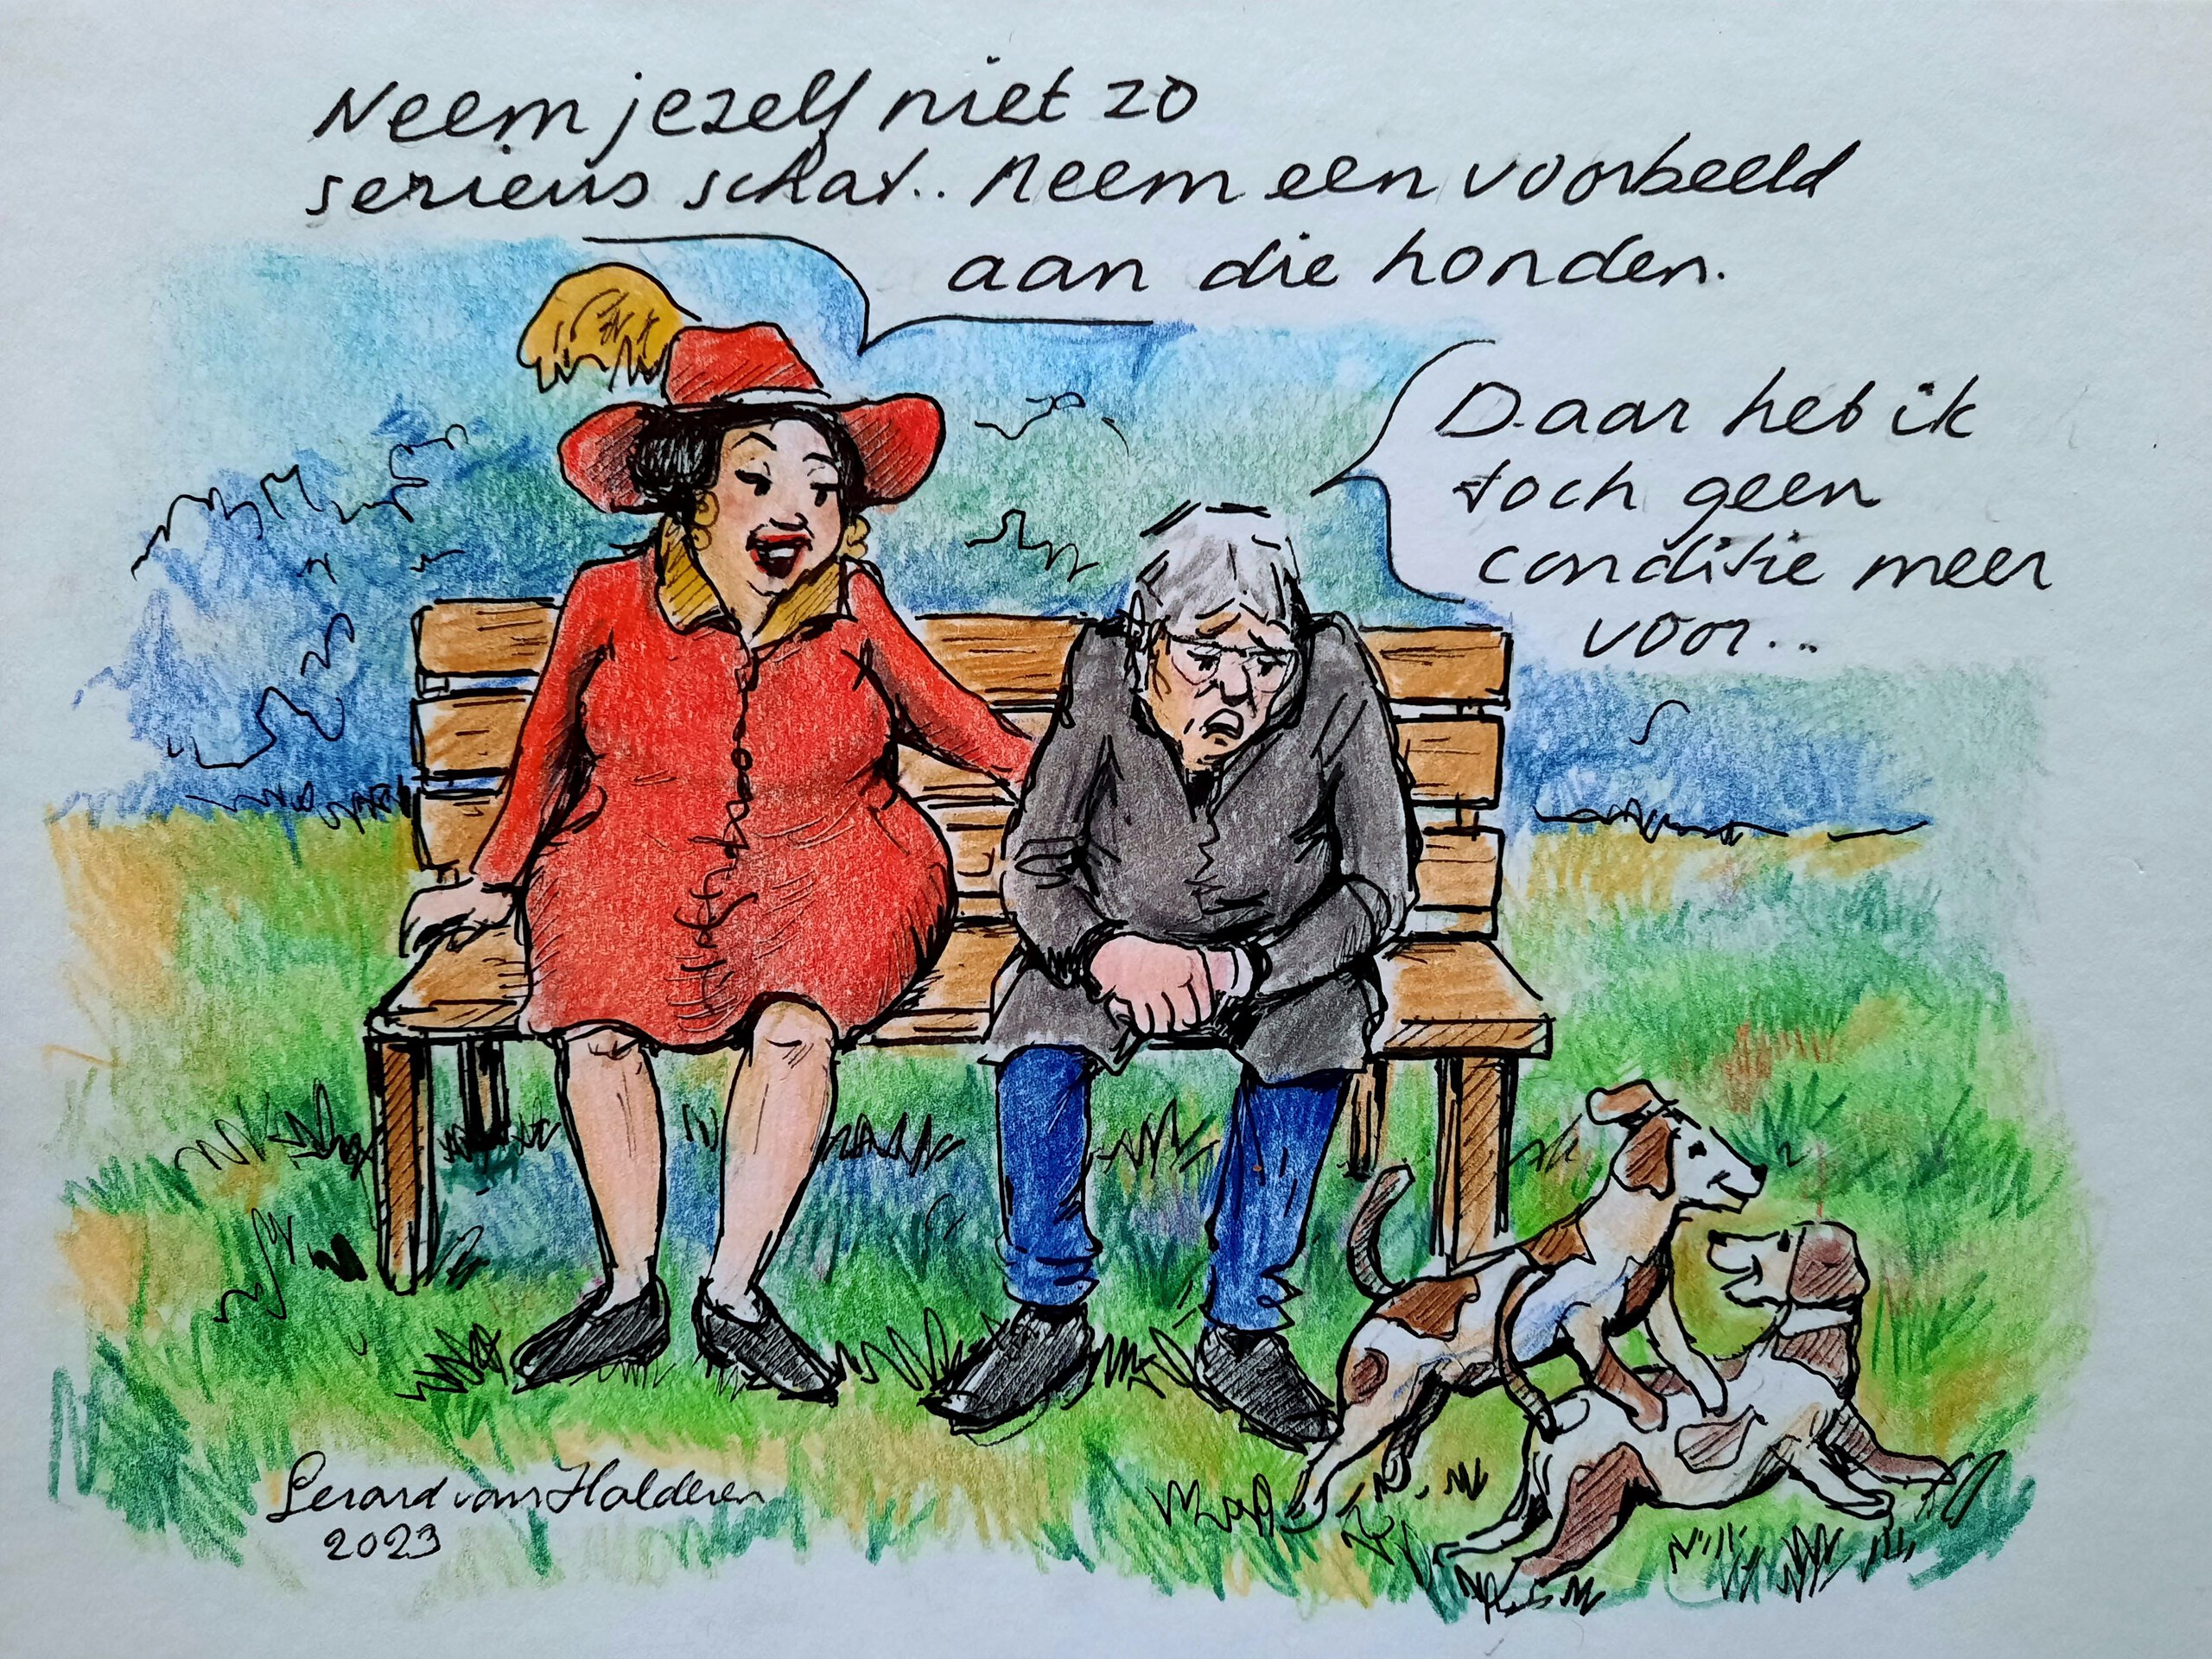 Neem jezelf niet zo
serieus schat.. Neem een voorbeeld
aan die honden.
Daar heb ik
toch geen
conditie meer
voor...
Gerard van Halderen
2023